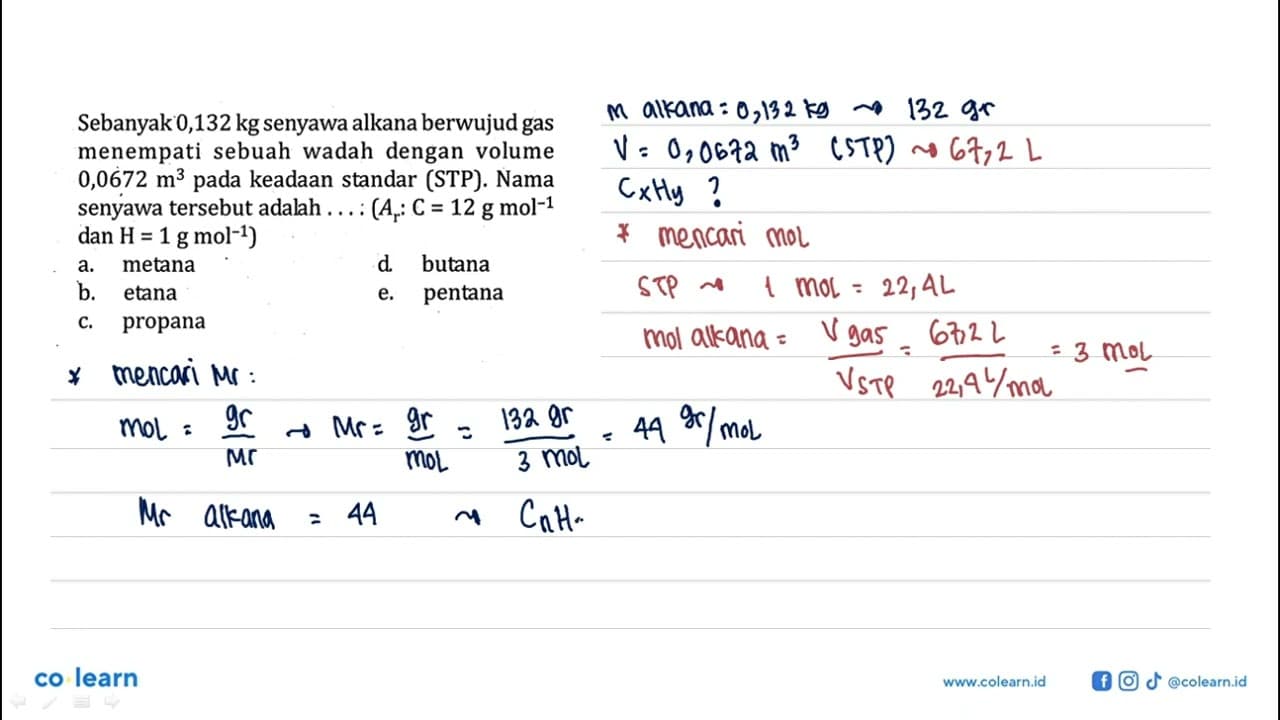 Sebanyak 0,132 kg senyawa alkana berwujud gas
menempati sebuah wadah dengan volume
0,0672 m³ pada keadaan standar (STP). Nama
senyawa tersebut adalah . . . . : (Aᵣ: C = 12 g mol⁻¹
dan H = 1 g mol⁻¹)
a. metana
b. etana
c. propana
d. butana
e. pentana
m alkana = 0,132 kg ⤳ 132 gr
V = 0,0672 m³ (STP) ⤳ 67,2 L
CxHy ?
* mencari mol
STP ⤳ 1 mol = 22,4 L
mol alkana = V gas / V STP = 67,2 L / 22,4 L/mol = 3 mol
* mencari Mr :
mol = gr / Mr → Mr = gr / mol = 132 gr / 3 mol = 44 gr/mol
Mr alkana = 44 ⤳ CnH
co learn
www.colearn.id
@colearn.id